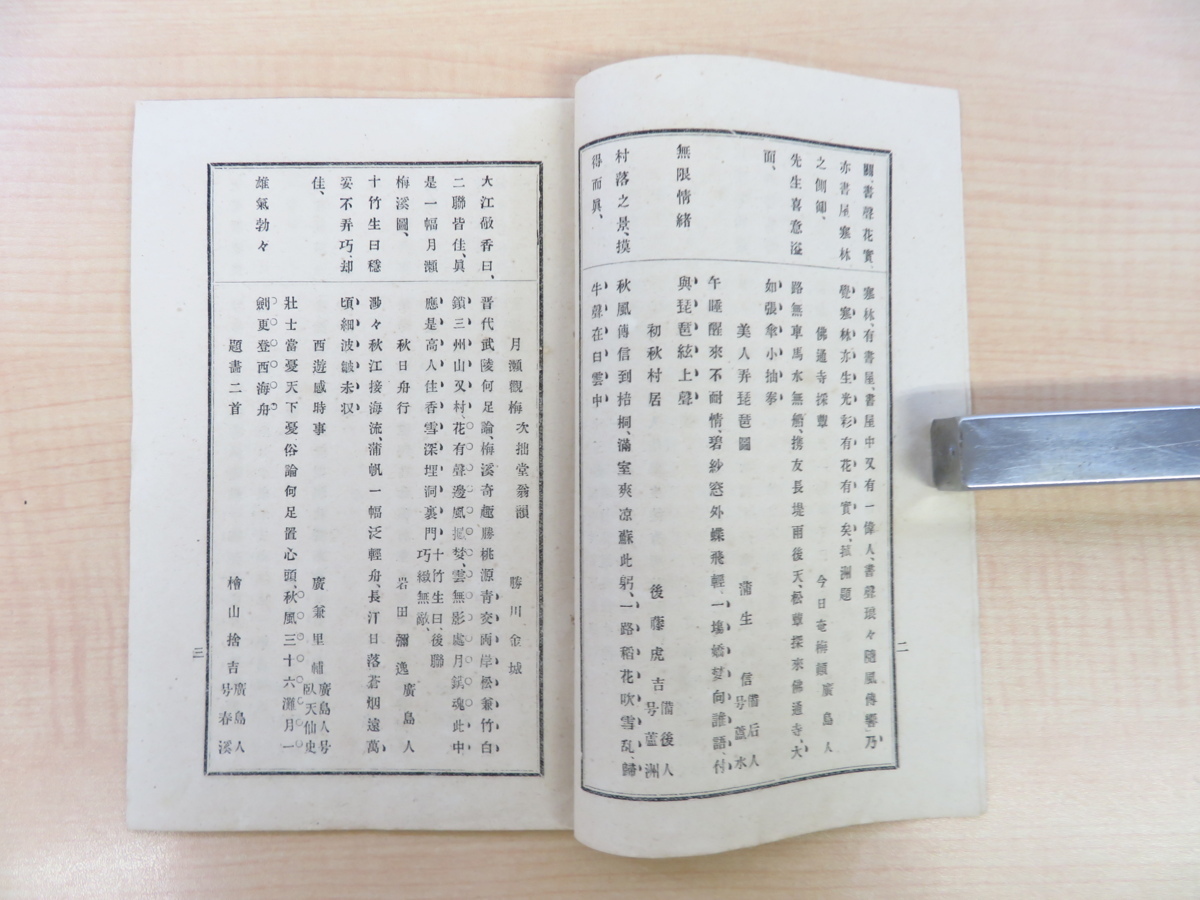 關、書聲花實、
亦書屋寒林
之側師、
先生喜意溢
面、
無限情緒
村落之景、摸
得而眞、
寒林、有書屋、書屋中又有一偉人、書聲琅々隨風傳響、乃
覺寒林亦生光彩有花有實矣、
佛通寺採蕈
今日庵
廣島人
路無車馬水無船、携友長堤雨後天、松蕈採來佛通寺、大
如張傘小拙拳
美人弄琵琶圖
蒲生
信 備后人号蘆水
午睡醒來不耐情、碧紗窓外蝶飛輕、一塲嬌夢向誰語、付
與琵琶絃上聲
初秋村居
後藤虎吉 備後人号蘆洲
秋風傳信到梧桐、滿室爽凉蘇此躬、一路稻花吹雪乱、歸
牛聲在白雲中
二
大江敬香曰、
二聯皆佳、眞
是一幅月瀬
梅溪圖、
十竹生曰穩
妥不弄巧、却
佳、
雄氣勃々
月瀬觀梅 次拙堂翁韻
勝川金城
晋代武陵何足論、梅溪奇趣勝桃源、青交兩岸松兼竹、白
鎖三州山又村、花有聲邊風攪夢、雲無影處月鎖魂、此中
應是高人住、香雪深埋洞裏門 十竹生曰、後聯巧緻無敵、
秋日舟行
岩田彌逸 廣島人
渺々秋江接海流、蒲帆一幅泛輕舟、長汀日落蒼烟遠、萬
頃細波皺未収
西遊感時事
廣兼里輔 廣島人号臥天仙史
壯士當憂天下憂、俗論何足置心頭、秋風三十六灘月、一
劍更登西海舟
題畵二首
檜山捨吉 廣島人号春溪
三